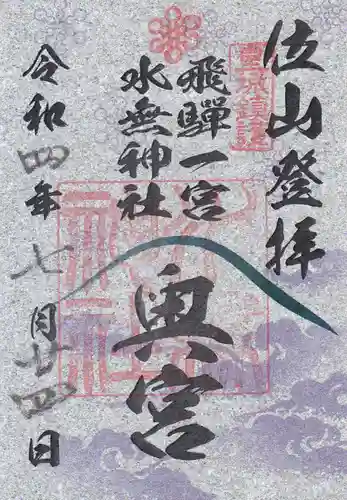 位山登拝
飛騨一宮
水無神社
奥宮
令和四年七月廿四日